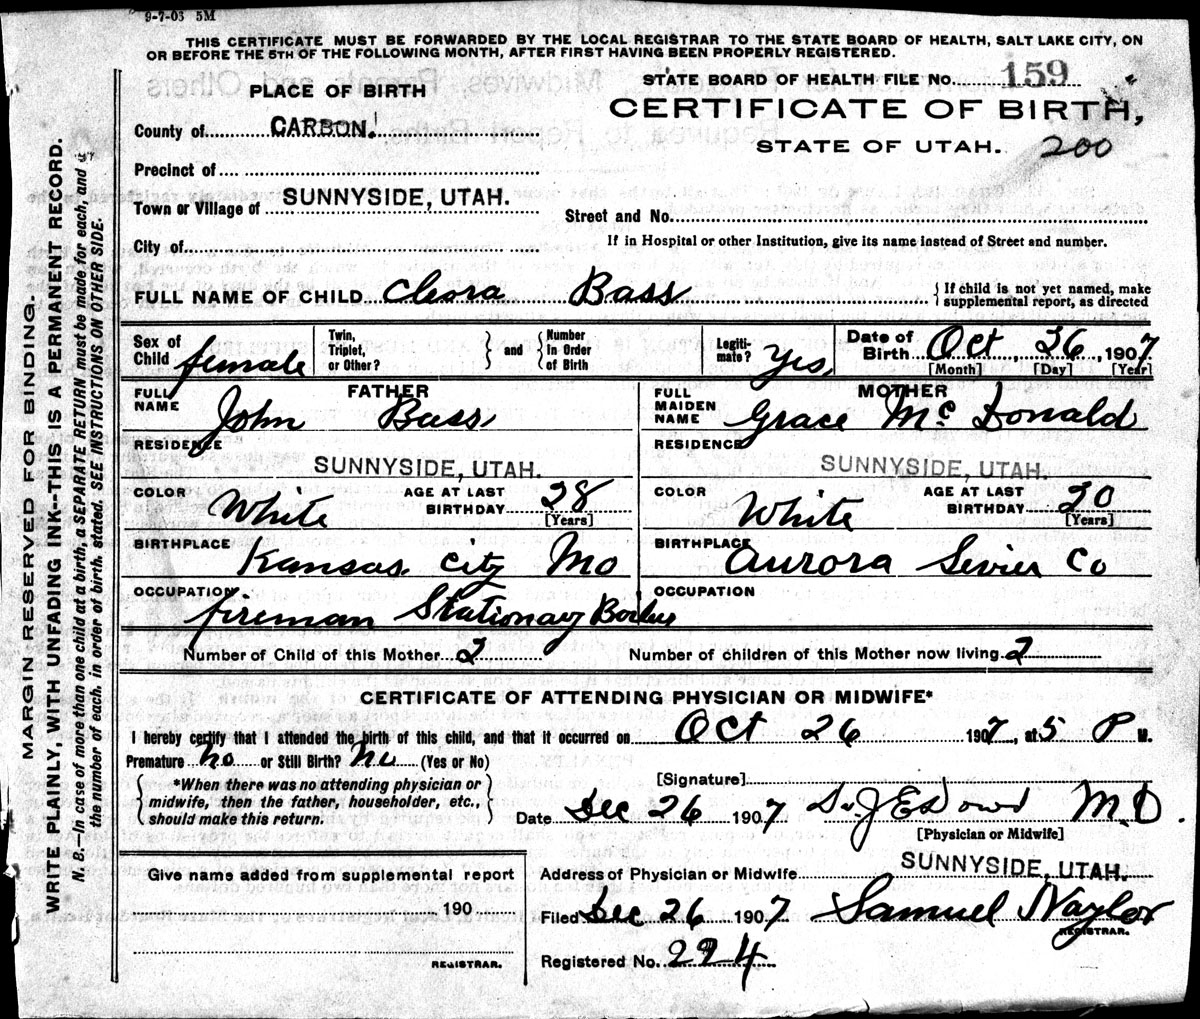 9-7-03 5M
THIS CERTIFICATE MUST BE FORWARDED BY THE LOCAL REGISTRAR TO THE STATE BOARD OF HEALTH, SALT LAKE CITY, ON
OR BEFORE THE 5TH OF THE FOLLOWING MONTH, AFTER FIRST HAVING BEEN PROPERLY REGISTERED.
MARGIN RESERVED FOR BINDING.
WRITE PLAINLY, WITH UNFADING INK--THIS IS A PERMANENT RECORD.
N. B.—In case of more than one child at a birth, a SEPARATE RETURN must be made for each and
the number of each, in order of birth, stated. SEE INSTRUCTIONS ON OTHER SIDE.
PLACE OF BIRTH
STATE BOARD OF HEALTH FILE NO. 159
CERTIFICATE OF BIRTH,
STATE OF UTAH. 200
County of CARBON.
Precinct of
Town or Village of SUNNYSIDE, UTAH.
Street and No.
City of
If in Hospital or other Institution, give its name instead of Street and number.
FULL NAME OF CHILD Cleora Bass
{ If child is not yet named, make
supplemental report, as directed
Sex of Child female
Twin, Triplet, or Other? } and { Number in Order of Birth
Legiti-mate? Yes
Date of Birth Oct, 26, 1907
[Month] [Day] [Year]
FATHER
FULL NAME John Bass
MOTHER
FULL MAIDEN NAME Grace McDonald
RESIDENCE SUNNYSIDE, UTAH.
RESIDENCE SUNNYSIDE, UTAH.
COLOR White AGE AT LAST BIRTHDAY 28 [Years]
COLOR White AGE AT LAST BIRTHDAY 20 [Years]
BIRTHPLACE Kansas City Mo
BIRTHPLACE Aurora Sevier Co
OCCUPATION fireman Stationary
OCCUPATION
Number of Child of this Mother 2
Number of children of this Mother now living 2
CERTIFICATE OF ATTENDING PHYSICIAN OR MIDWIFE*
I hereby certify that I attended the birth of this child, and that it occurred on Oct 26 1907, at 5 P M.
Premature no or Still Birth? no (Yes or No)
{ *When there was no attending physician or
midwife, then the father, householder, etc.,
should make this return. }
[Signature]
Date Dec 26 1907 M.D.
[Physician or Midwife]
Give name added from supplemental report
190
REGISTRAR.
Address of Physician or Midwife SUNNYSIDE, UTAH.
Filed Dec 26 1907 Samuel Naylor
REGISTRAR.
Registered No. 224